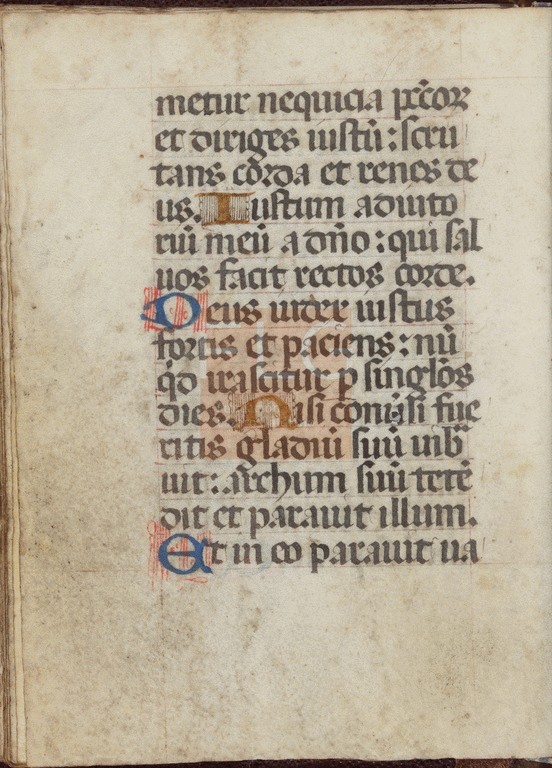 metur nequicia pc̄cor
et diriges iustū: scru
tans corda et renes de
us. Iustum adiuto
riū meū a dño: qui sal
uos facit rectos corde.
Deus iudex iustus
fortis et paciens: nū
qd̄ irascitur p singlōs
dies. Nisi conūsi fue
ritis gladiū suū uib̄
uit: archum suū tetē
dit et parauit illum.
Et in eo parauit ua